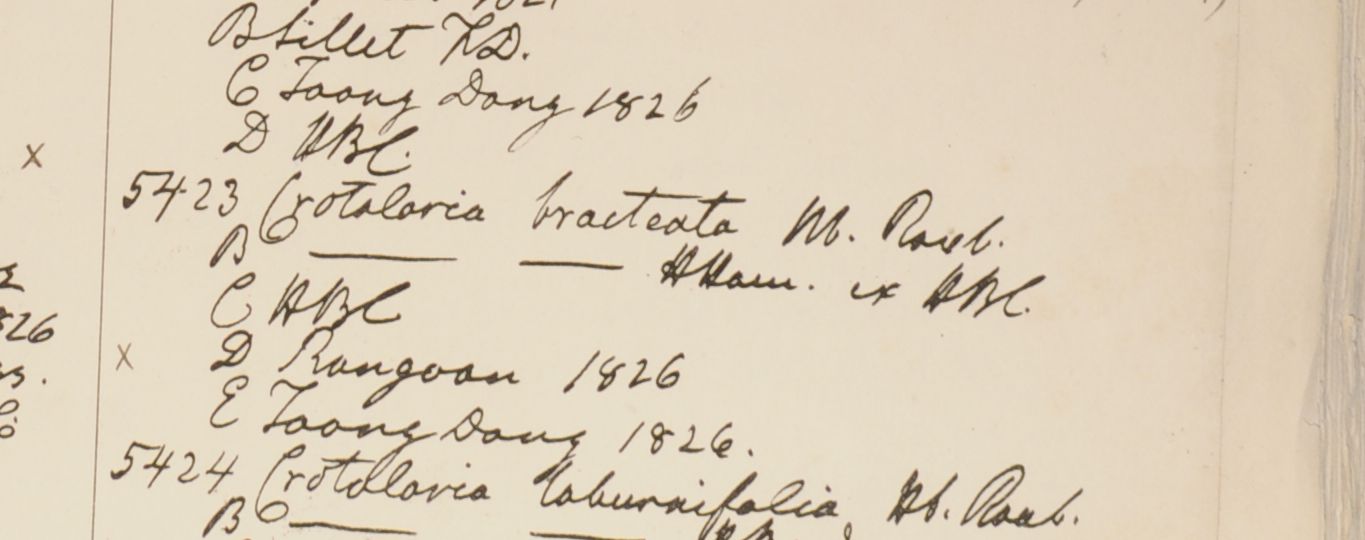 B Sillet F.D.
C Toong Dong 1826
D HBC.
5423 Crotalaria bracteata Hb. Roxb.
B —— —— HHam. ex HBC.
C HBC
D Rangoon 1826
E Toong Dong 1826.
26
5424 Crotalaria laburnifolia, Hb. Roxb.
B —— ——